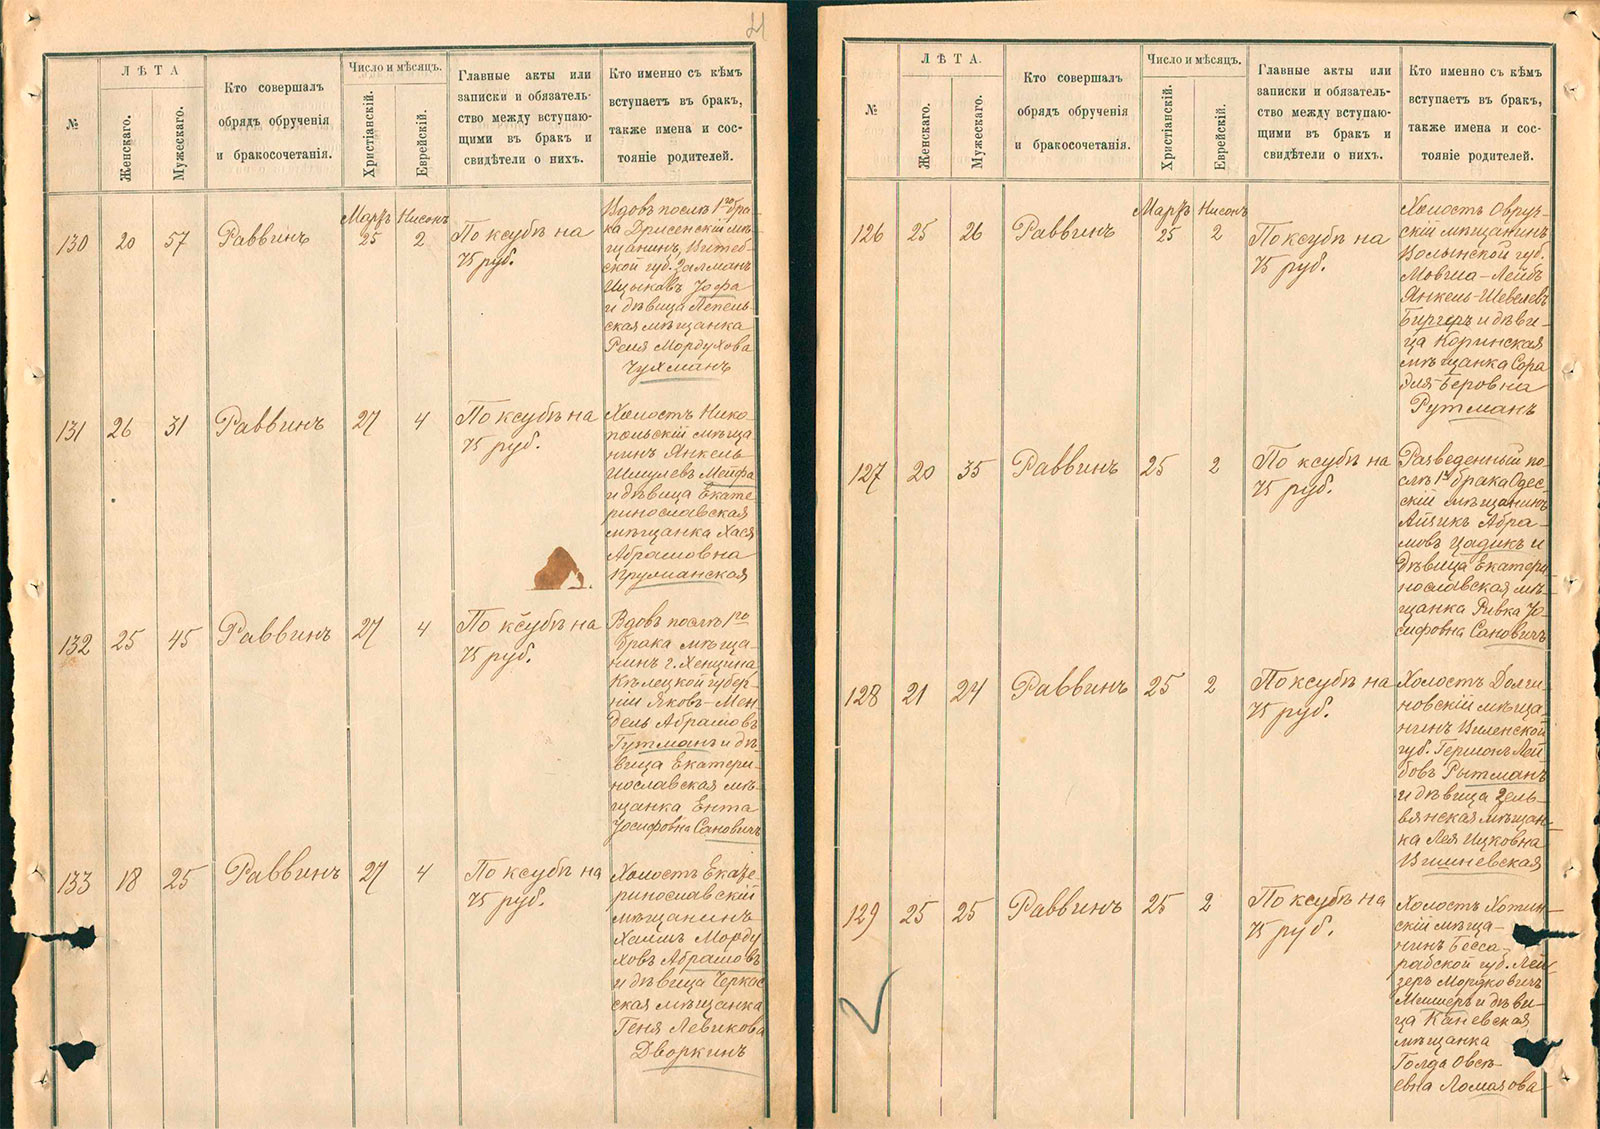 №
ЛѢТА
Женскаго.
Мужескаго.
Кто совершалъ
обрядъ обрученія
и бракосочетанія.
Число и мѣсяцъ.
Христіанскій.
Еврейскій.
Главные акты или
записки и обязатель-
ство между вступаю-
щими въ бракъ и
свидѣтели о нихъ.
Кто именно съ кѣмъ
вступаетъ въ бракъ,
также имена и сос-
тояніе родителей.
130
20
57
Раввинъ
Мартъ
25
Нисонъ
2
По ксубѣ на
75 руб.
Вдовъ послѣ 1го бра-
ка Дрисенскій мѣ-
щанинъ, Витеб-
ской губ. Залманъ
Ицыковъ Іофа
и дѣвица Лепель-
ская мѣщанка
Рейя Мордухова
Чухманъ
131
26
31
Раввинъ
27
4
По ксубѣ на
75 руб.
Холостъ Нико
польскій мѣща
нинъ Янкель
Шмулевъ Мейфа
и дѣвица Екате
ринославская
мѣщанка Хася
Абрамовна
Крулианская
132
25
45
Раввинъ
27
4
По ксубѣ на
75 руб.
Вдовъ послѣ 1го
брака мѣща-
нинъ г. Хенцина
Кѣлецкой губер-
ніи Яковъ-Мен
дель Абрамовъ
Гутманъ и дѣ
вица Екатери-
нославская мѣ-
щанка Ента
Іосифовна Сановичъ
133
18
25
Раввинъ
27
4
По ксубѣ на
75 руб.
Холостъ Екате
ринославскій
мѣщанинъ
Хаимъ Морду
ховъ Абрамовъ
и дѣвица Черкас
ская мѣщанка
Геня Левикова
Дворкинъ
№
ЛѢТА.
Женскаго.
Мужескаго.
Кто совершалъ
обрядъ обрученія
и бракосочетанія.
Число и мѣсяцъ.
Христіанскій.
Еврейскій.
Главные акты или
записки и обязатель-
ство между вступаю-
щими въ бракъ и
свидѣтели о нихъ.
Кто именно съ кѣмъ
вступаетъ въ бракъ,
также имена и сос-
тояніе родителей.
126
25
26
Раввинъ
Мартъ
25
Нисонъ
2
По ксубѣ на
75 руб.
Холостъ Овруч-
скій мѣщанинъ
Волынской губ.
Мовша-Лейбъ
Янкель-Шевелевъ
Биргеръ и дѣви-
ца Коринская
мѣщанка Сора
Дыя-Беровна
Рутманъ
127
20
35
Раввинъ
25
2
По ксубѣ на
75 руб.
Разведенный по-
слѣ 1го брака Одес-
скій мѣщанинъ
Айзикъ Абра-
мовъ Цадикъ и
дѣвица Екатери
нославская мѣ-
щанка Ривка Іо-
сифовна Сановичъ
128
21
24
Раввинъ
25
2
По ксубѣ на
75 руб.
Холостъ Долги-
новскій мѣща-
нинъ Виленской
губ. Гершонъ Лей
бовъ Рытманъ
и дѣвица Зель-
вянская мѣщан-
ка Лея Ицковна
Вишневская
129
25
25
Раввинъ
25
2
По ксубѣ на
75 руб.
Холостъ Хотин-
скій мѣща-
нинъ Бесса-
рабской губ. Лей
зеръ Мордковичъ
Мишеръ и дѣви-
ца Каневская
мѣщанка
Голда Овсѣ
евна Ломазова